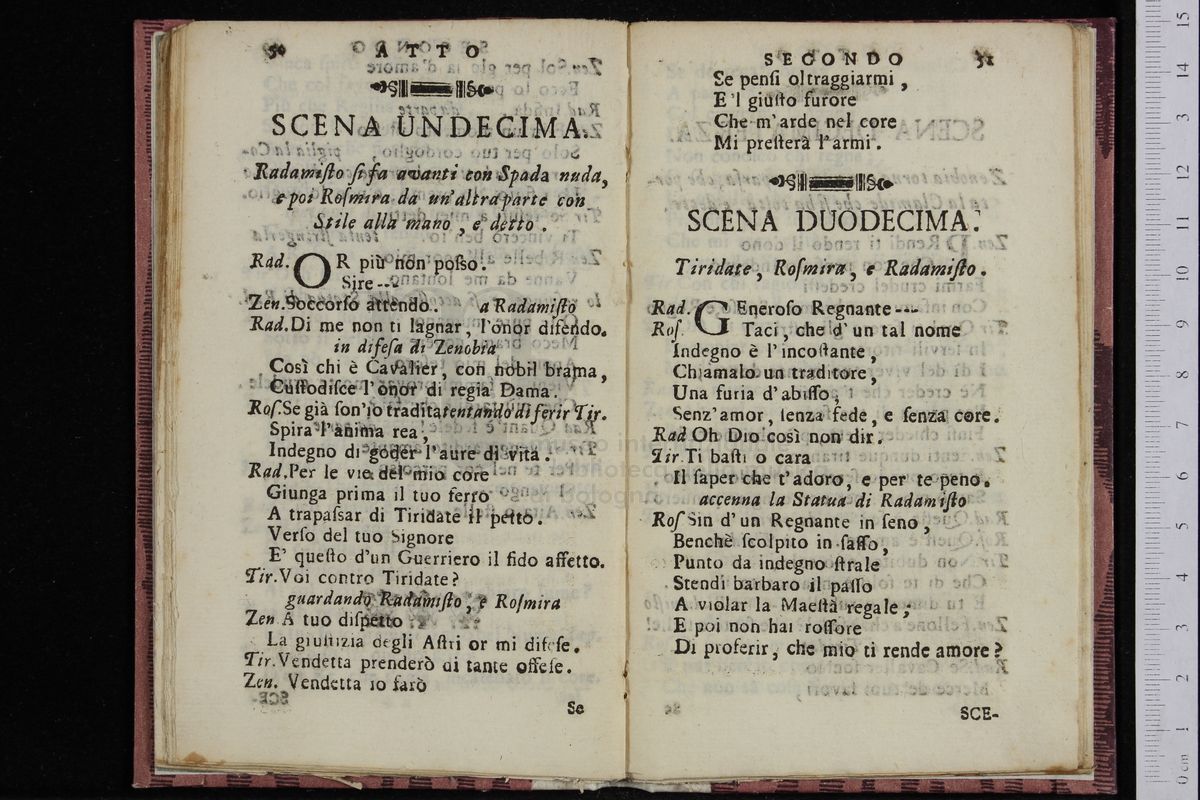 50 ATTO
SCENA UNDECIMA.
Radamiſto ſi fa avanti con Spada nuda,
e poi Roſmira da un'altra parte con
Stile alla mano, e detto.
Rad. OR più non poſso.
Sire --
Zen. Soccorſo attendo. a Radamiſto
Rad. Di me non ti lagnar, l'onor difendo.
in difeſa di Zenobia
Così chi è Cavalier, con nobil brama,
Cuſtodiſce l'onor di regia Dama.
Roſ. Se già ſon'io tradita tentando di ferir Tir.
Spira l'anima rea,
Indegno di goder l'aure di vita.
Rad. Per le vie del mio core
Giunga prima il tuo ferro
A trapaſsar di Tiridate il petto.
Verſo del tuo Signore
E' queſto d'un Guerriero il fido affetto.
Tir. Voi contro Tiridate?
guardando Radamiſto, e Roſmira
Zen. A tuo diſpetto
La giuſtizia degli Aſtri or mi difeſe.
Tir. Vendetta prenderò di tante offeſe.
Zen. Vendetta io farò
Se
SECONDO 51
Se penſi oltraggiarmi,
E'l giuſto furore
Che m'arde nel core
Mi preſterà l'armi.
SCENA DUODECIMA.
Tiridate, Roſmira, e Radamiſto.
Rad. GEneroſo Regnante ---
Roſ. Taci, che d'un tal nome
Indegno è l'incoſtante,
Chiamalo un traditore,
Una furia d'abiſſo,
Senz'amor, ſenza fede, e ſenza core.
Rad Oh Dio così non dir.
Tir. Ti baſti o cara
Il ſaper che t'adoro, e per te peno.
accenna la Statua di Radamiſto
Roſ Sin d'un Regnante in ſeno,
Benchè ſcolpito in ſaſſo,
Punto da indegno ſtrale
Stendi barbaro il paſſo
A violar la Maeſtà regale;
E poi non hai roſſore
Di proferir, che mio ti rende amore?
SCE-
0 cm 1 2 3 4 5 6 7 8 9 10 11 12 13 14 15